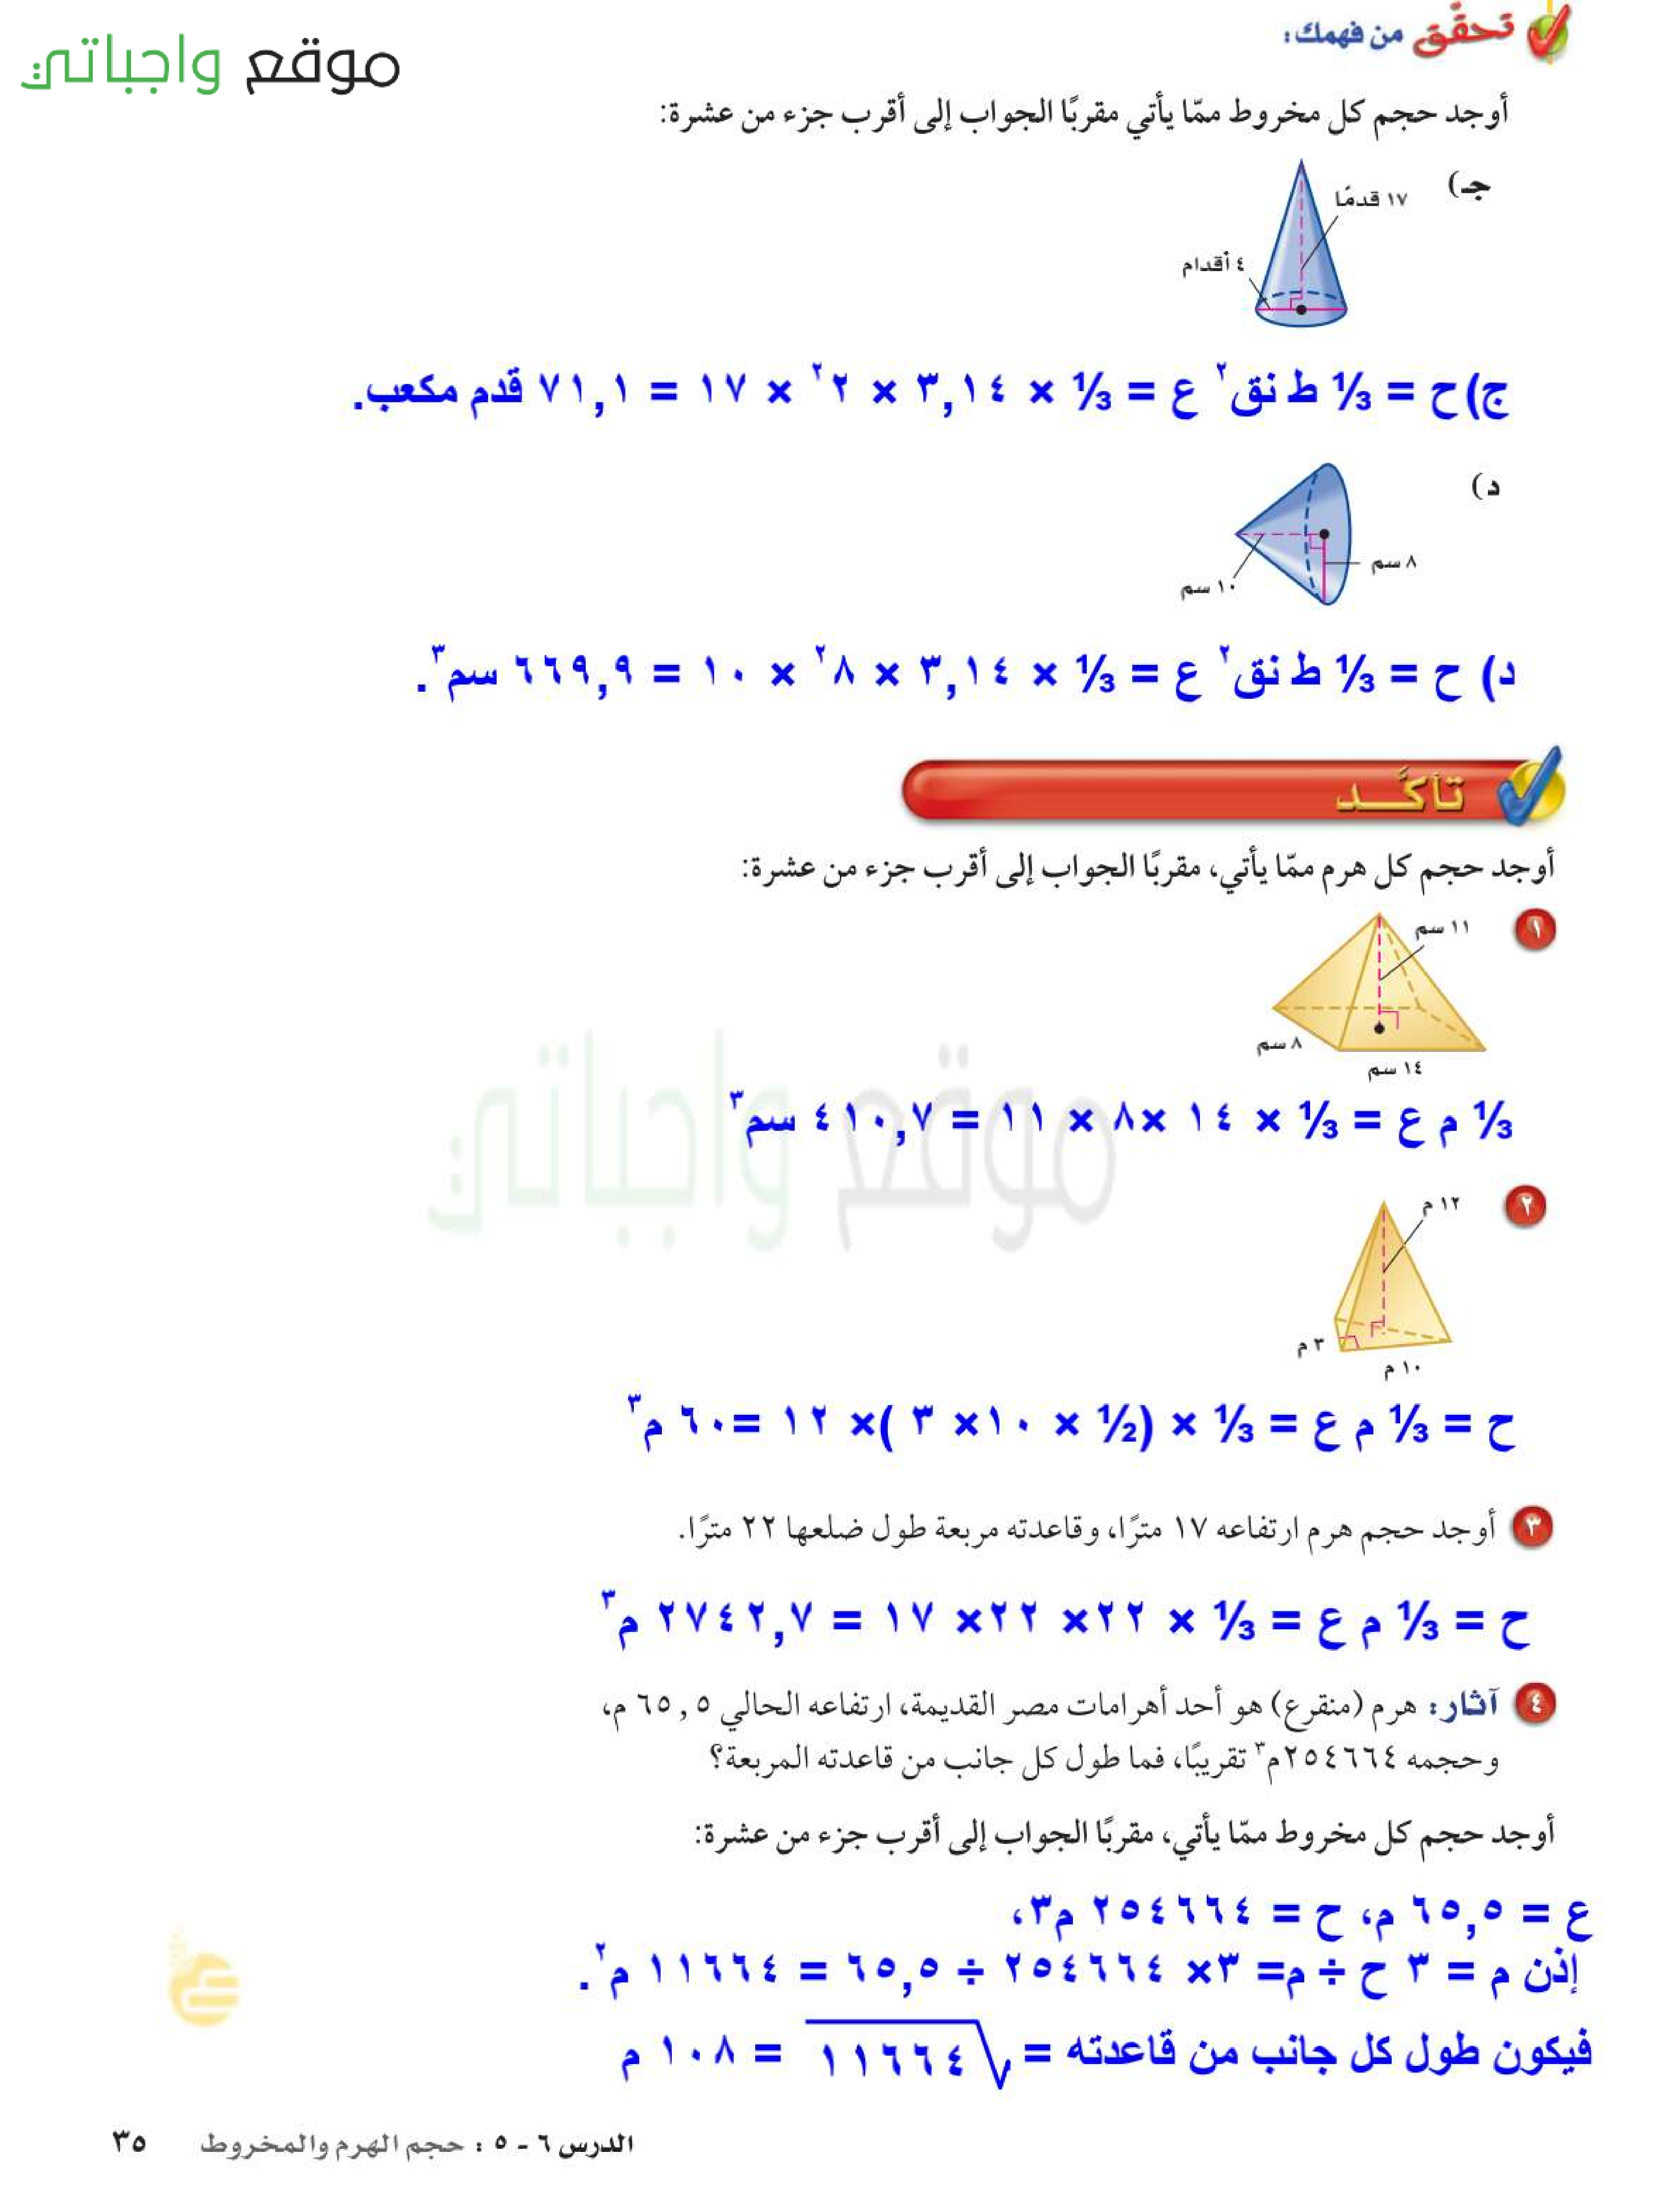 موقع واجباتي
تحقَّق من فهمك:
أوجد حجم كل مخروط ممّا يأتي مقربًا الجواب إلى أقرب جزء من عشرة:
جـ)
١٧ قدمًا
٤ أقدام
ج) ح = ⅓ ط نق٢ ع = ⅓ × ٣,١٤ × ٢٢ × ١٧ = ٧١,١ قدم مكعب.
د)
٨ سم
١٠ سم
د) ح = ⅓ ط نق٢ ع = ⅓ × ٣,١٤ × ٨٢ × ١٠ = ٦٦٩,٩ سم٣.
تأكَّــد
أوجد حجم كل هرم ممّا يأتي، مقربًا الجواب إلى أقرب جزء من عشرة:
١
١١ سم
٨ سم
١٤ سم
⅓ م ع = ⅓ × ١٤ ×٨ × ١١ = ٤١٠,٧ سم٣
موقع واجباتي
٢
١٢ م
٣ م
١٠ م
ح = ⅓ م ع = ⅓ × (½ × ١٠× ٣ )× ١٢ =٦٠ م٣
٣ أوجد حجم هرم ارتفاعه ١٧ مترًا، وقاعدته مربعة طول ضلعها ٢٢ مترًا.
ح = ⅓ م ع = ⅓ × ٢٢× ٢٢× ١٧ = ٢٧٤٢,٧ م٣
٤ آثار: هرم (منقرع) هو أحد أهرامات مصر القديمة، ارتفاعه الحالي ٦٥,٥ م،
وحجمه ٢٥٤٦٦٤م٣ تقريبًا، فما طول كل جانب من قاعدته المربعة؟
أوجد حجم كل مخروط ممّا يأتي، مقربًا الجواب إلى أقرب جزء من عشرة:
ع = ٦٥,٥ م، ح = ٢٥٤٦٦٤ م٣،
إذن م = ٣ ح ÷ م= ٣× ٢٥٤٦٦٤ ÷ ٦٥,٥ = ١١٦٦٤ م٢.
فيكون طول كل جانب من قاعدته = √١١٦٦٤ = ١٠٨ م
الدرس ٦ - ٥ : حجم الهرم والمخروط ٣٥